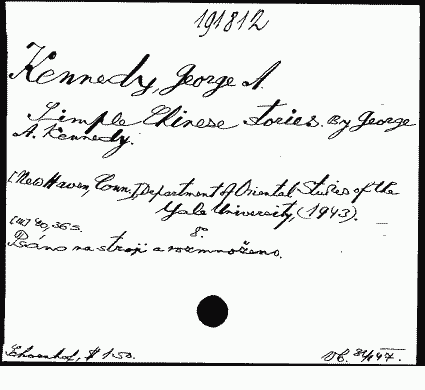 191812
Kennedy, George A.
Simple Chinese stories. By George
A. Kennedy.
[New Haven, Conn.], Department of Oriental Studies of the
Yale University, (1943).
[III] 40, 36 s. 8°.
Psáno na stroji a rozmnoženo.
$ 1.50.